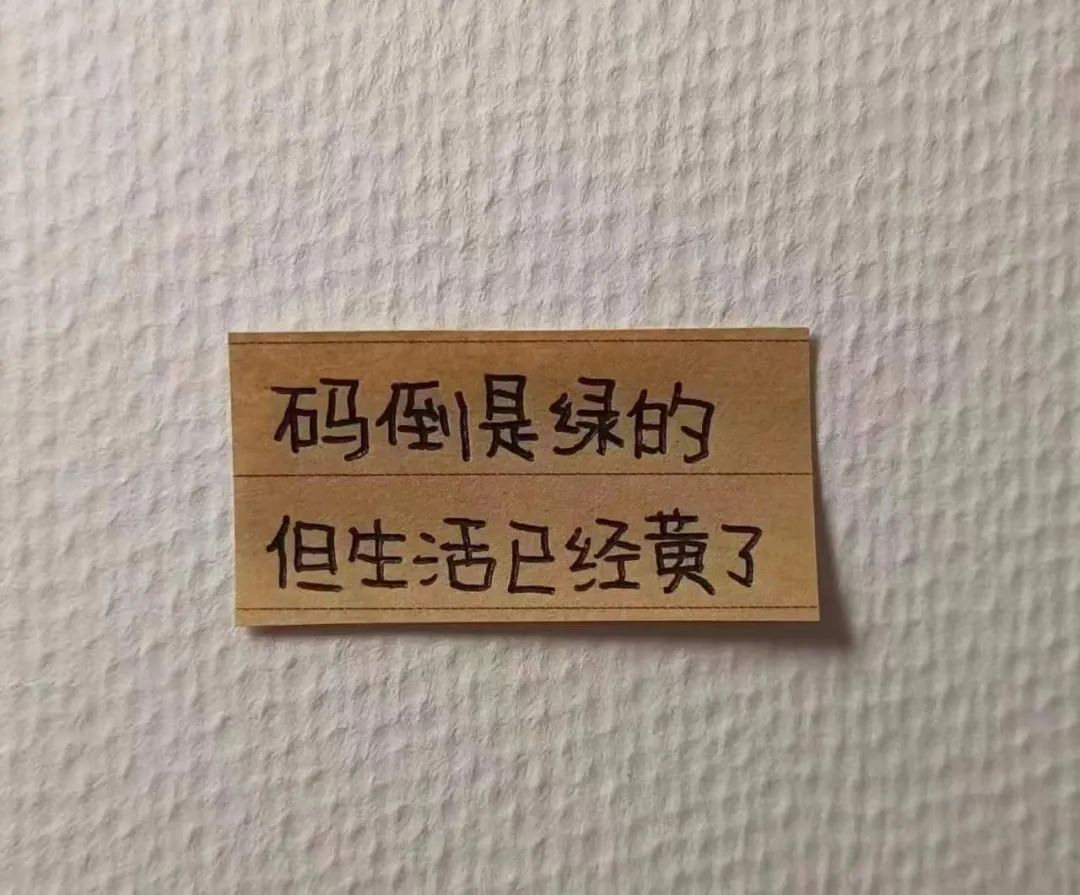 码倒是绿的
但生活已经黄了